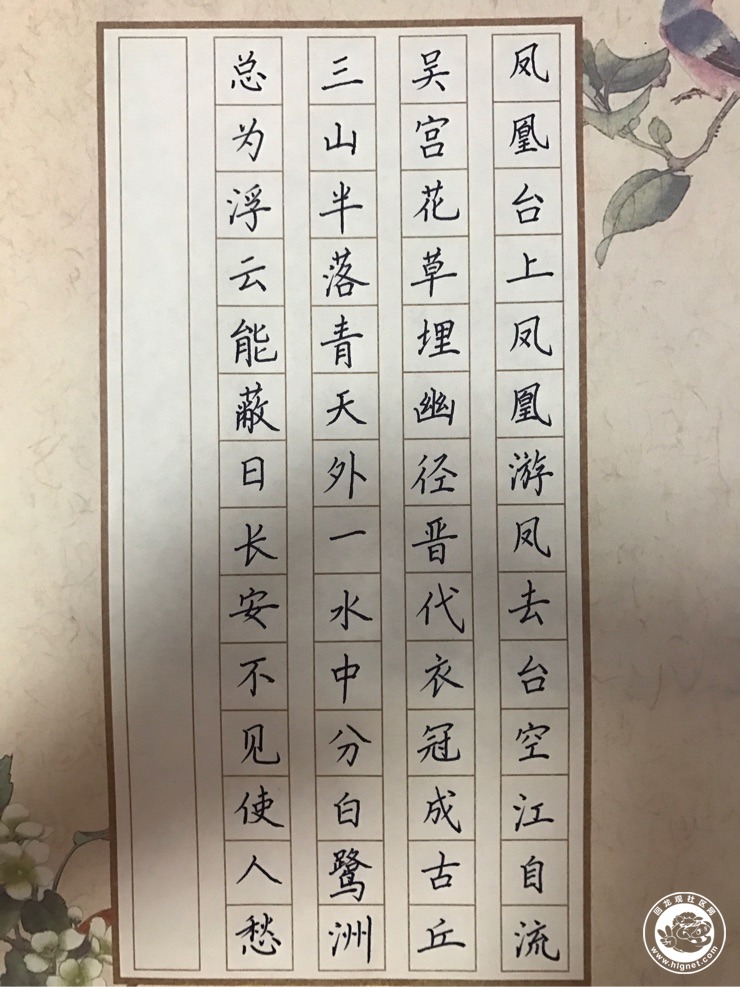 凤凰台上凤凰游凤去台空江自流
吴宫花草埋幽径晋代衣冠成古丘
三山半落青天外一水中分白鹭洲
总为浮云能蔽日长安不见使人愁
回龙观社区网
www.hlgnet.com